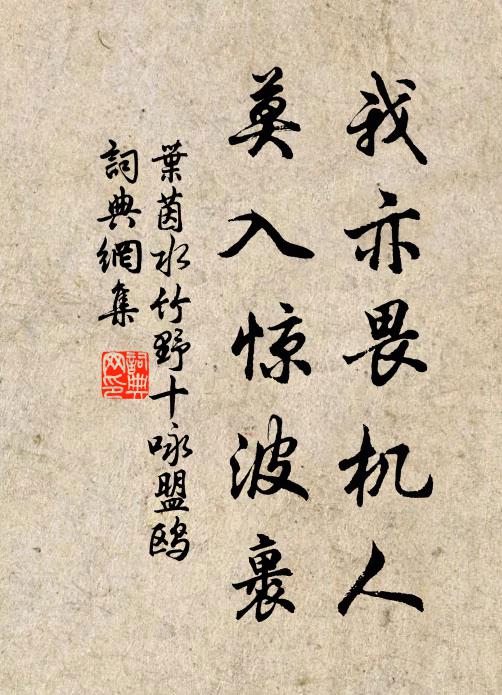 我亦畏机人
莫入惊波裹
葉茵水竹野十咏盟鸥
詞典網集
詞典網印